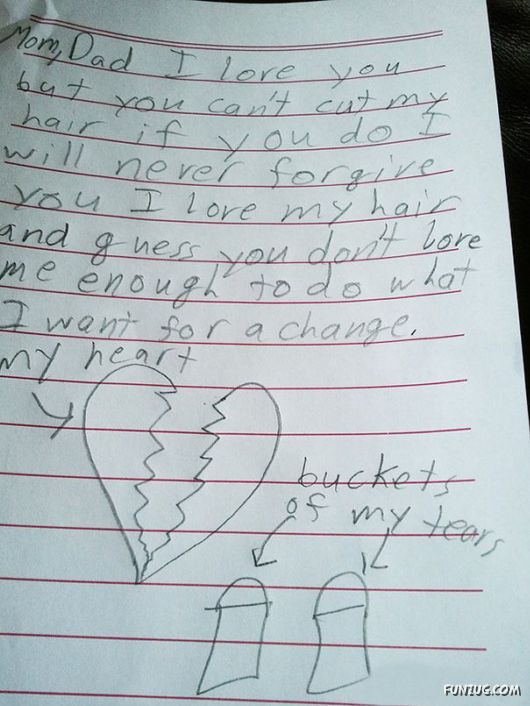 Mom, Dad I love you
but you can't cut my
hair if you do I
will never forgive
you I love my hair
and guess you don't love
me enough to do what
I want for a change.
my heart
buckets
of my tears
FUNZUG.COM